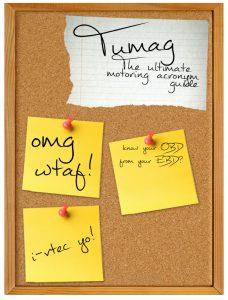 Tumag
The ultimate
motoring acronym
guide
omg
wtaf!
know your OBD
from your EBD?
i-vtec yo!